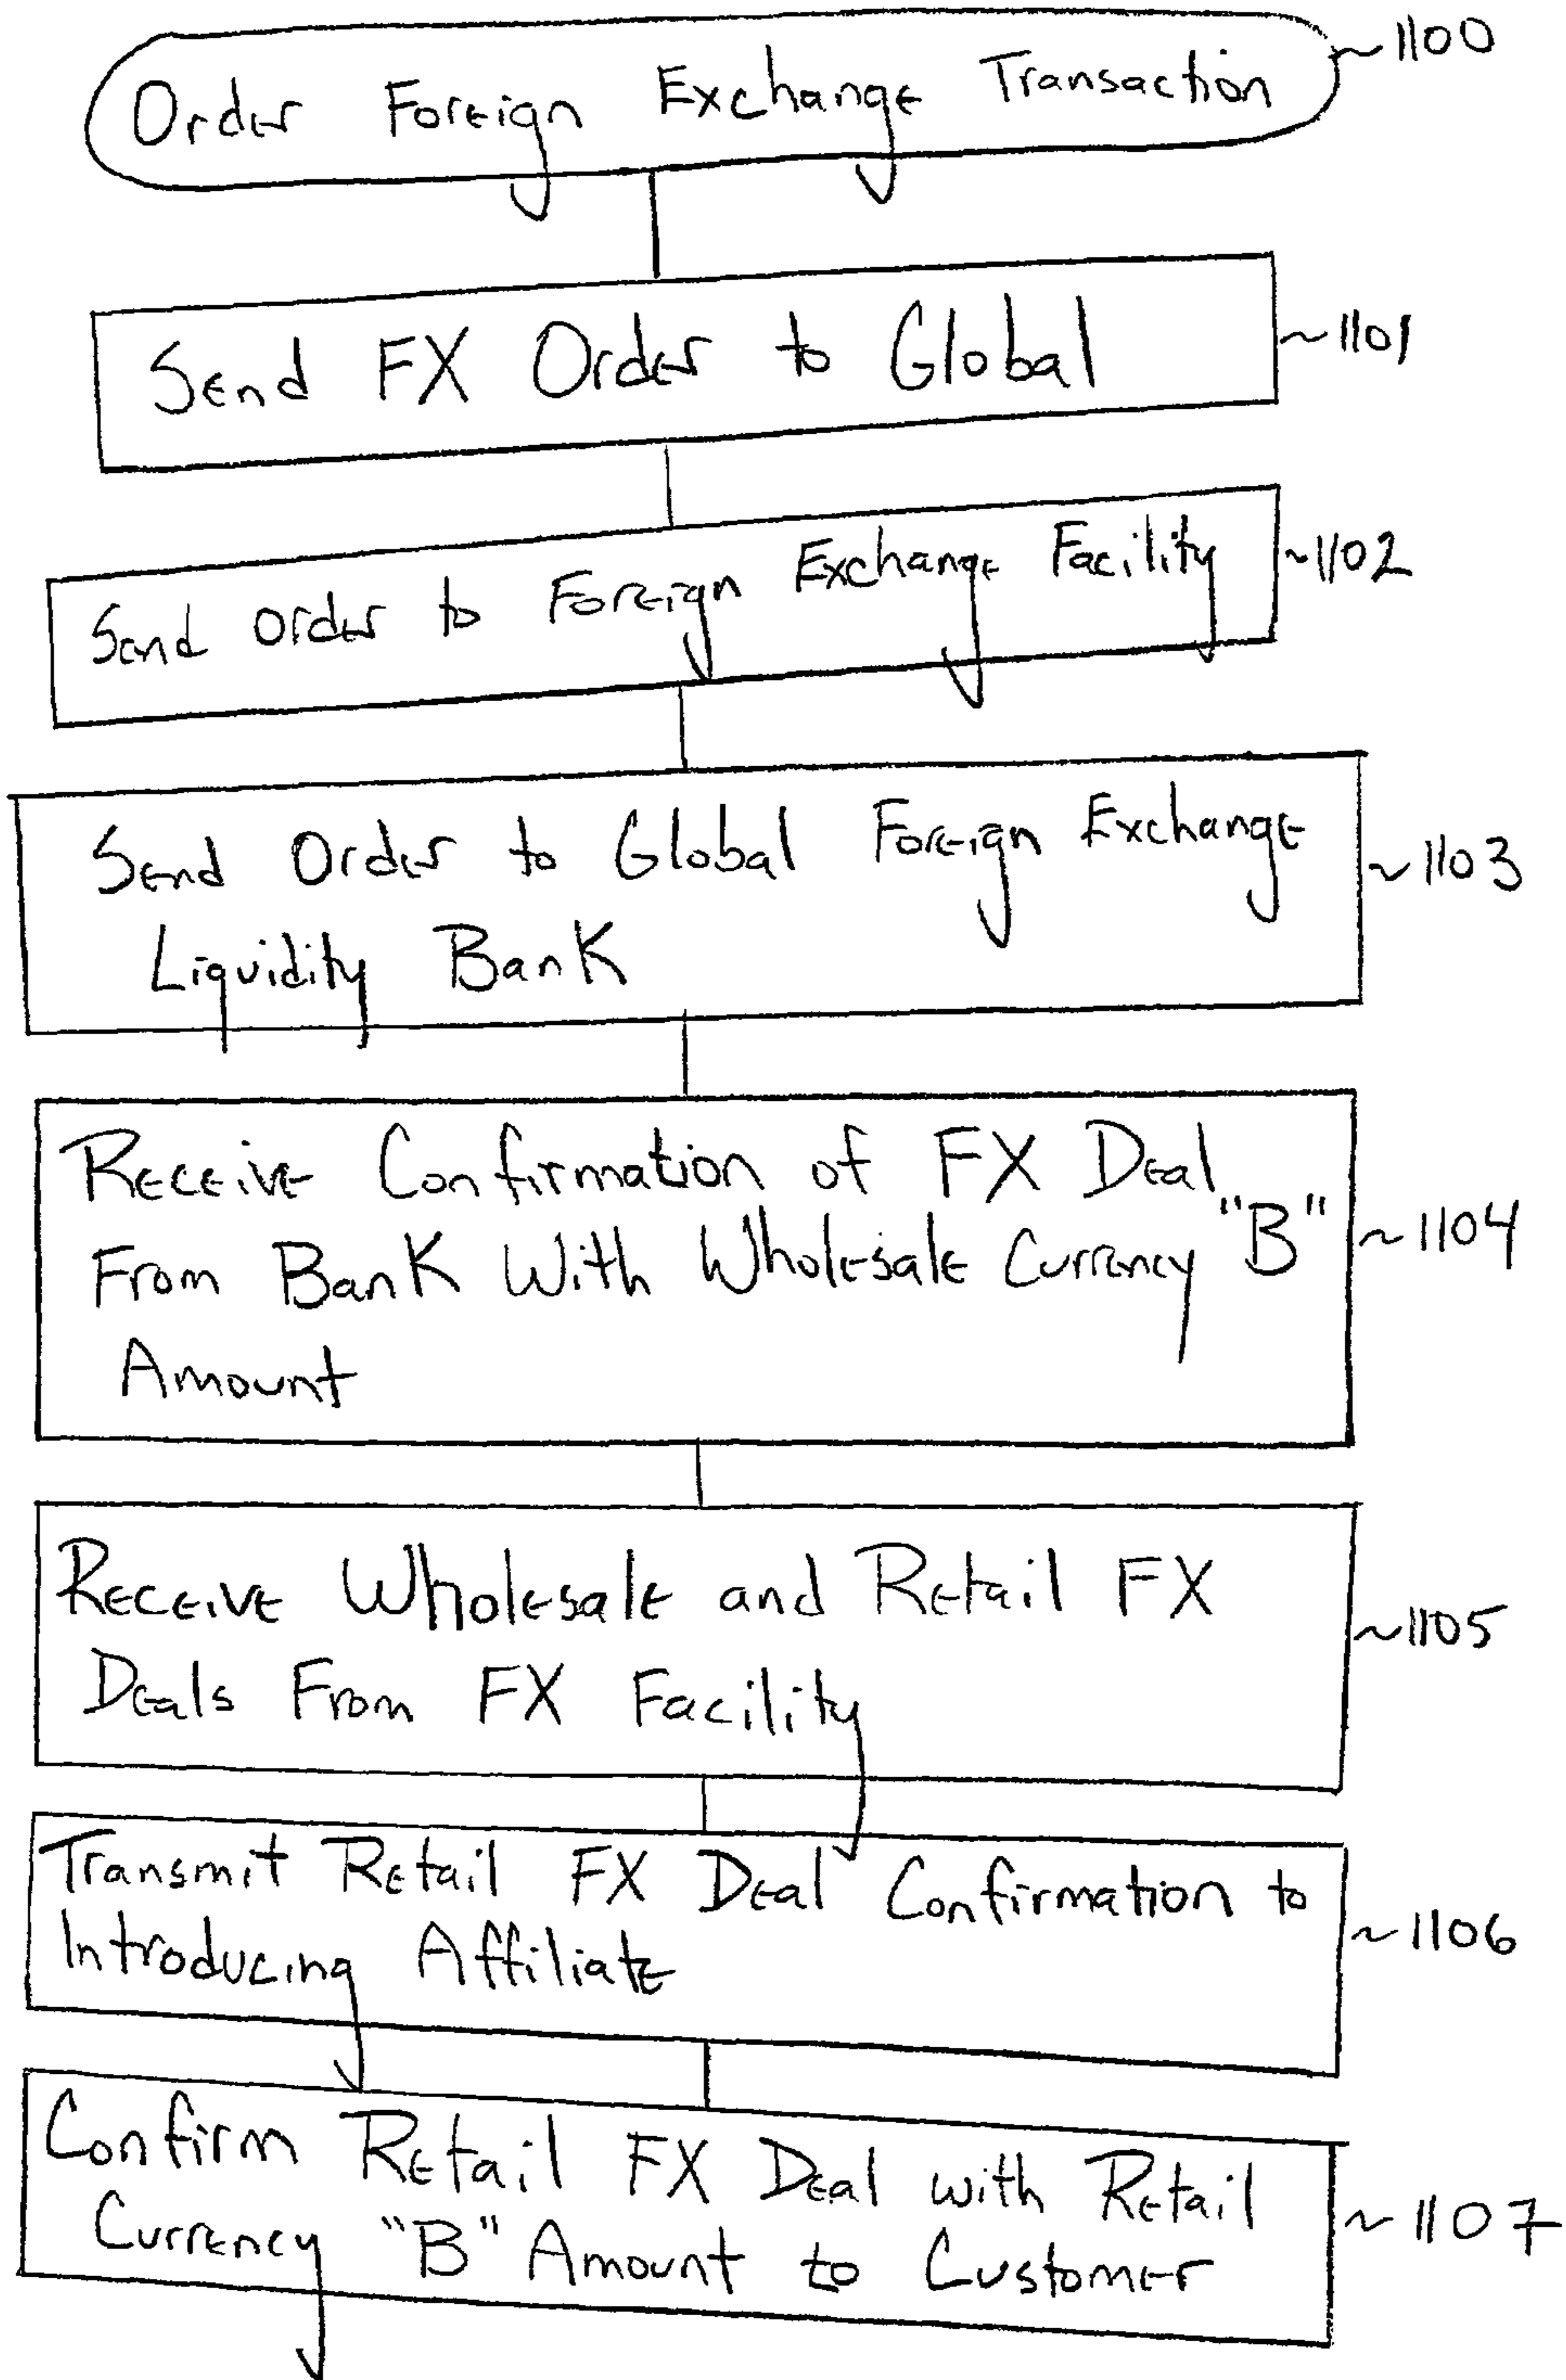 Order Foreign Exchange Transaction ~1100
Send FX Order to Global ~1101
Send Order to Foreign Exchange Facility ~1102
Send Order to Global Foreign Exchange ~1103
Liquidity Bank
Receive Confirmation of FX Deal
From Bank With Wholesale Currency "B" ~1104
Amount
Receive Wholesale and Retail FX ~1105
Deals From FX Facility
Transmit Retail FX Deal Confirmation to
Introducing Affiliate ~1106
Confirm Retail FX Deal with Retail
Currency "B" Amount to Customer ~1107